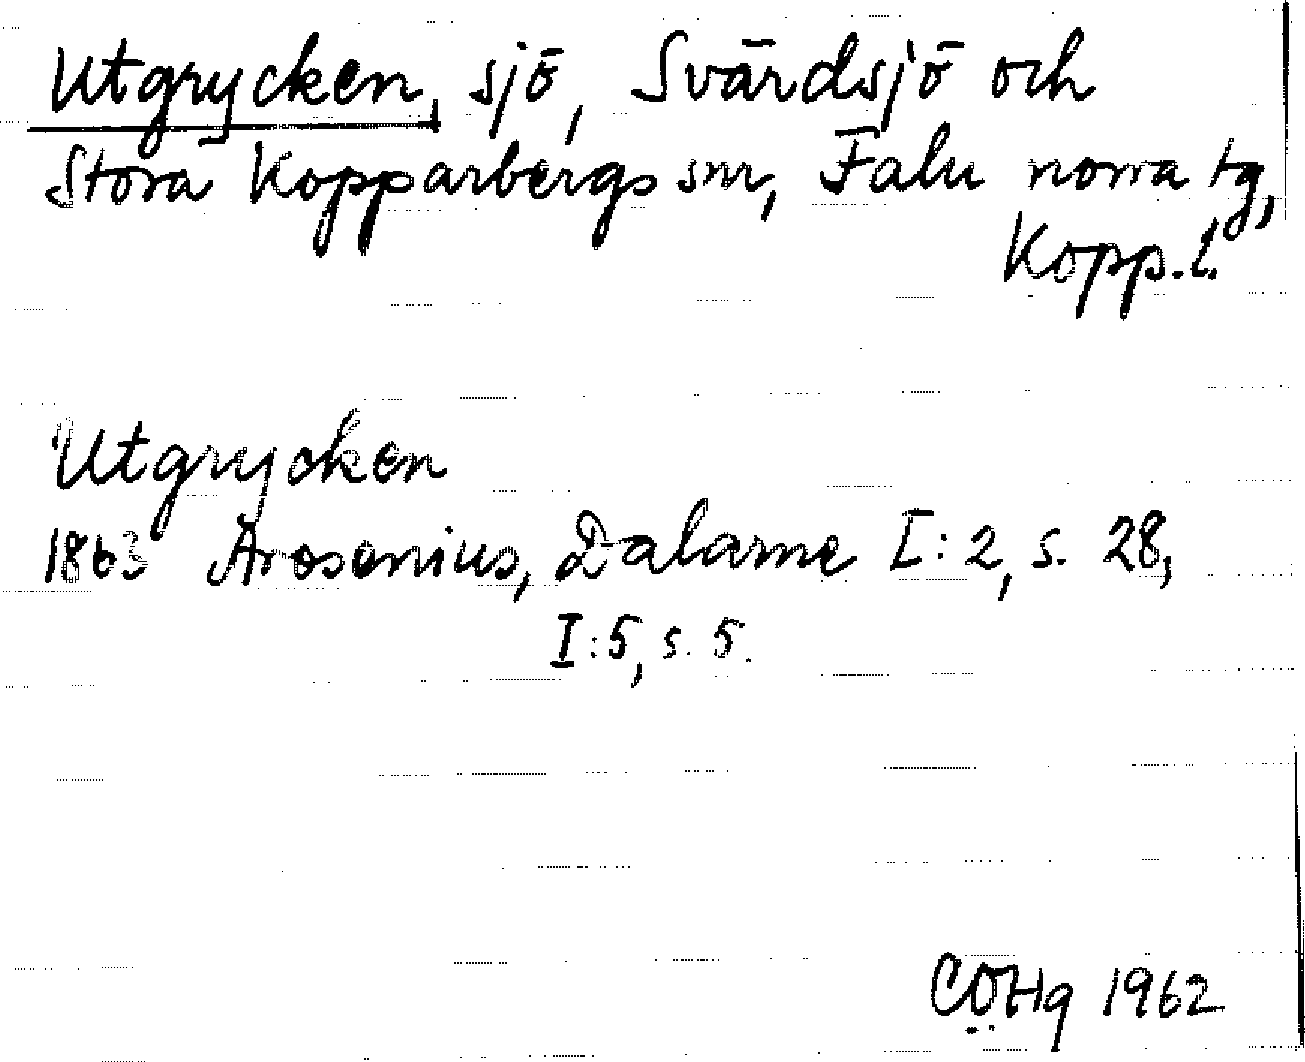 Utgrycken, sjö, Svärdsjö och
Stora Kopparbergs snr, Falu norra tg,
Kopp.l.
Utgrycken
1863 Arosenius, Dalarne I:2, s. 28,
I:5, s. 5.
CÖHg 1962